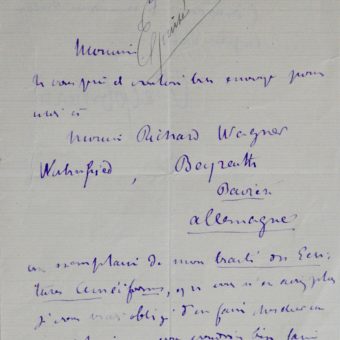 Expédié
Monsieur
Je vous prie de vouloir bien envoyer pour
moi à
Monsieur Richard Wagner
Wahnfried, Beyreuth
Bavière
Allemagne
un exemplaire de mon traité des Écri-
tures Cunéiformes, et si vous n'en avez plus
je vous serai obligé d'en faire